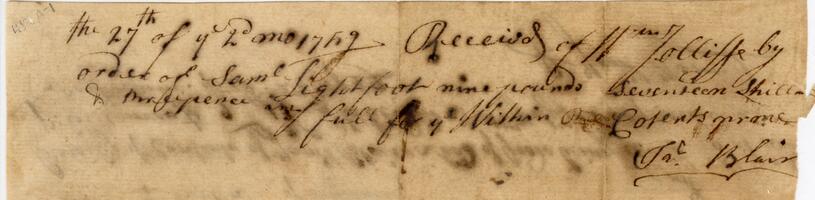 the 27th of ye 2d mo 1759 Received of Wm Jolliffe by
order of Saml Lightfoot nine pounds Seventeen Shill
& threepence in full for ye Within
Blair